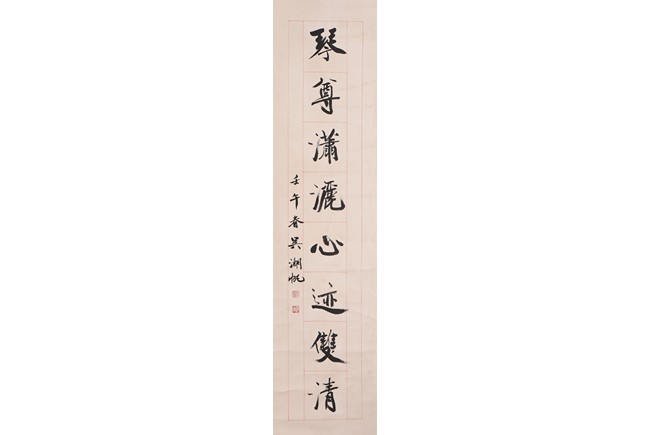 琴尊瀟灑心迹雙清
壬午春吳湖帆